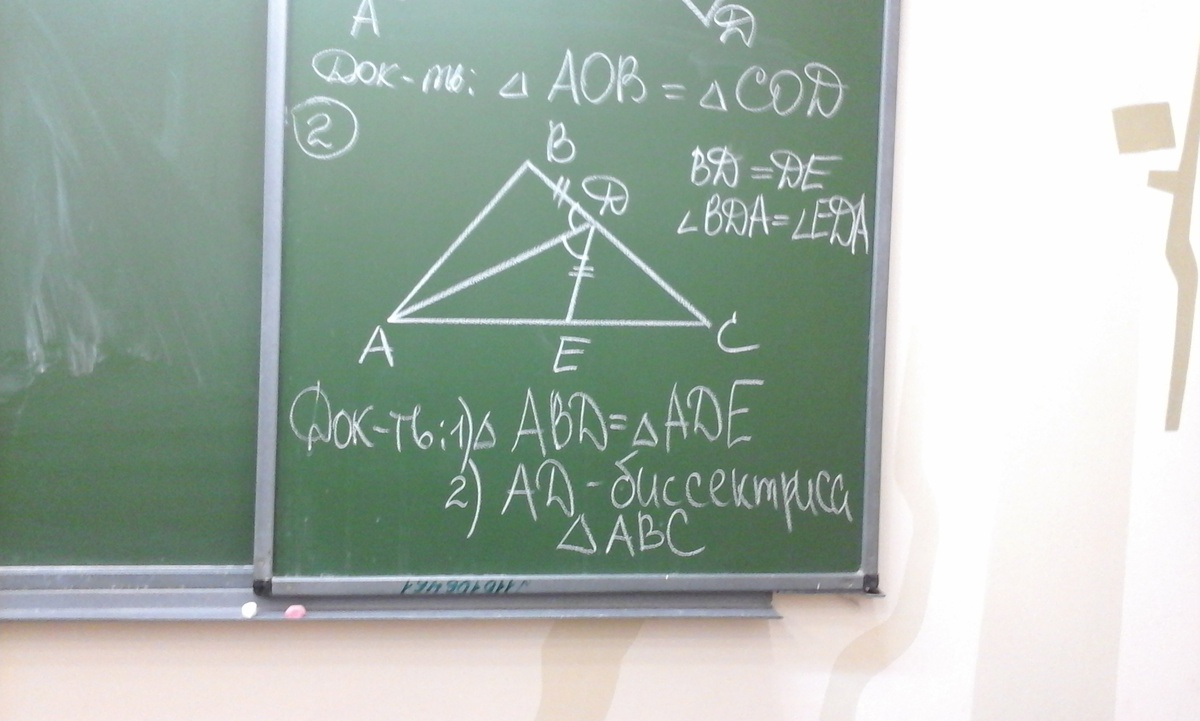 A D
Док-ть: △ AOB = △ COD
2
B
D
BD = DE
∠BDA = ∠EDA
A E C
Док-ть: 1) △ ABD = △ ADE
2) AD - биссектриса
△ ABC